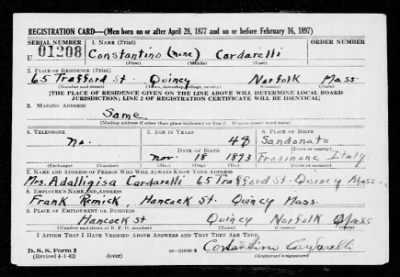 REGISTRATION CARD—(Men born on or after April 28, 1877 and on or before February 16, 1897)
SERIAL NUMBER 1. NAME (Print) ORDER NUMBER
U 01208 Constantino (none) Cardarelli
(First) (Middle) (Last)
2. PLACE OF RESIDENCE (Print)
65 Trafford St. Quincy Norfolk Mass.
[THE PLACE OF RESIDENCE GIVEN ON THE LINE ABOVE WILL DETERMINE LOCAL BOARD
JURISDICTION; LINE 2 OF REGISTRATION CERTIFICATE WILL BE IDENTICAL]
3. MAILING ADDRESS
Same
[Mailing address if other than place indicated on line 2. If same insert word same]
4. TELEPHONE 5. AGE IN YEARS 6. PLACE OF BIRTH
no. 48 Sandonato
DATE OF BIRTH
Nov. 18 1893 Frosinone Italy.
7. NAME AND ADDRESS OF PERSON WHO WILL ALWAYS KNOW YOUR ADDRESS
Mrs. Adalligisa Cardarelli 65 Trafford St. Quincy Mass.
8. EMPLOYER'S NAME AND ADDRESS
Frank Remick, Hancock St. Quincy Mass.
9. PLACE OF EMPLOYMENT OR BUSINESS
Hancock St Quincy Norfolk Mass
I AFFIRM THAT I HAVE VERIFIED ABOVE ANSWERS AND THAT THEY ARE TRUE.
D. S. S. Form 1
(Revised 4-1-42) (over) Costantino Cardarelli
(Registrant's signature)